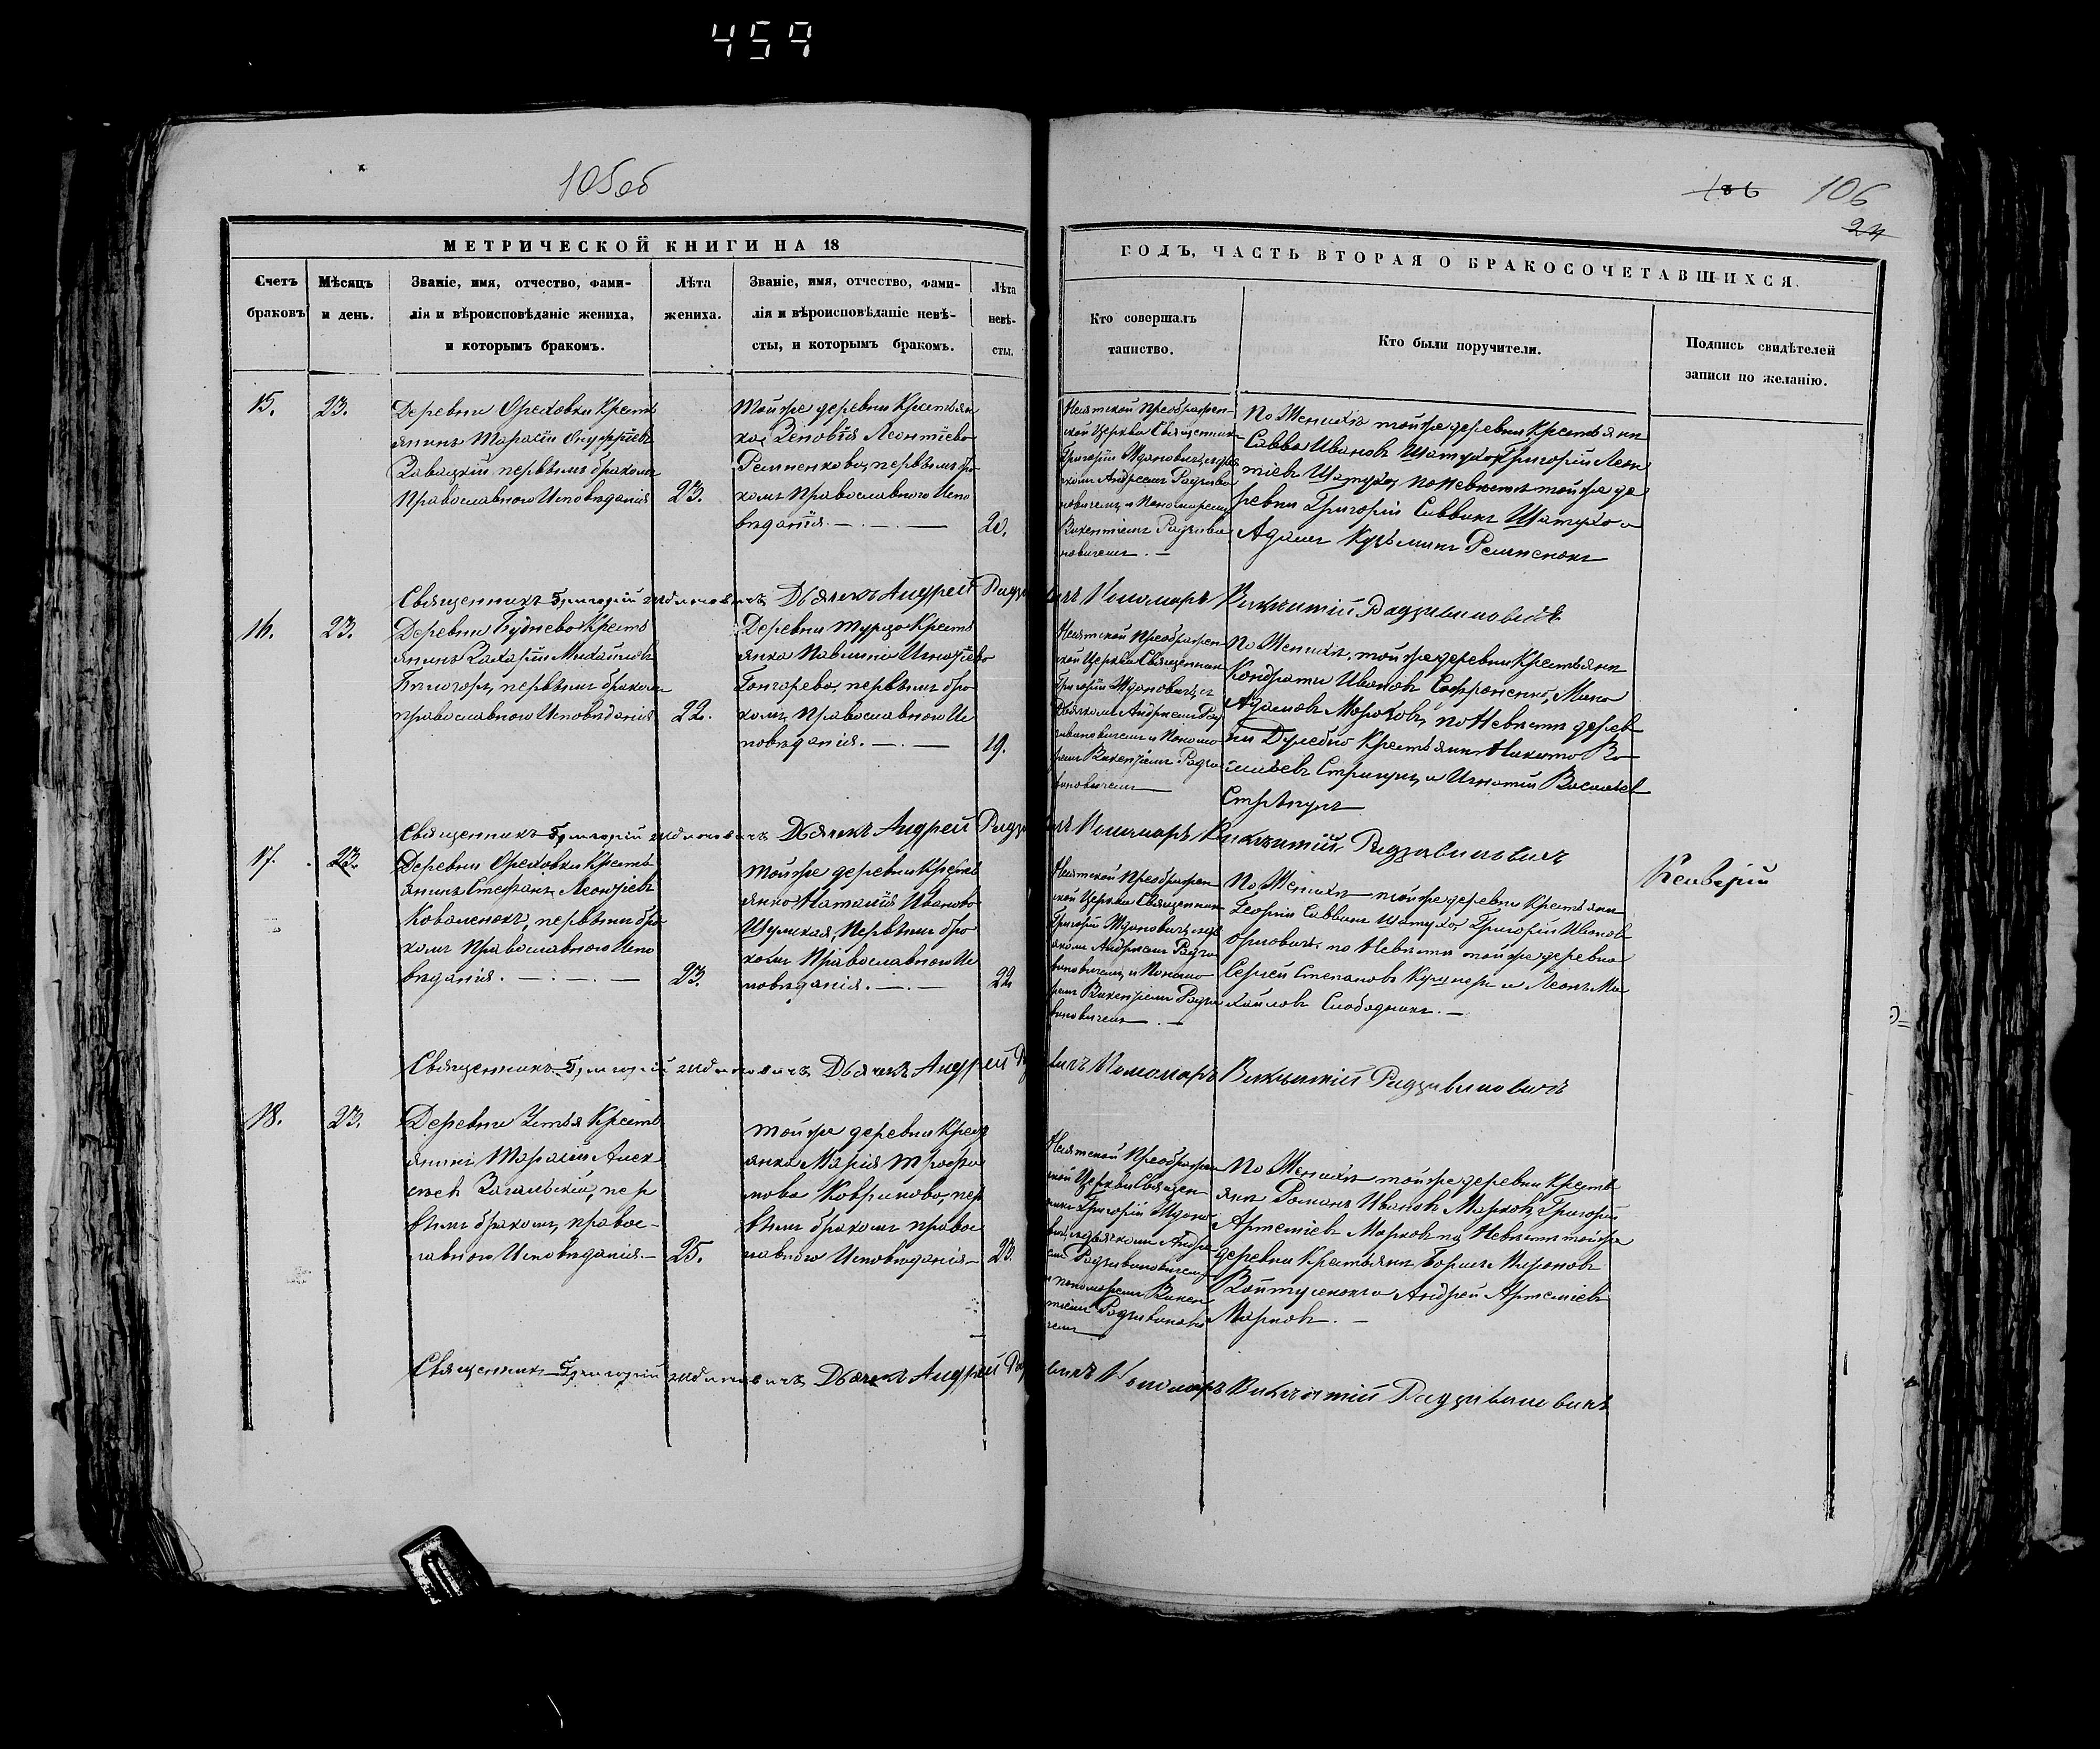 459
105об
106 106
24
МЕТРИЧЕСКОЙ КНИГИ НА 18
ГОДЪ, ЧАСТЬ ВТОРАЯ О БРАКОСОЧЕТАВШИХСЯ.
Счетъ
браковъ
Мѣсяцъ
и день.
Званіе, имя, отчество, фами-
лія и вѣроисповѣданіе жениха,
и которымъ бракомъ.
Лѣта
жениха.
Званіе, имя, отчество, фами-
лія и вѣроисповѣданіе невѣ-
сты, и которымъ бракомъ.
Лѣта
невѣ-
сты.
Кто совершалъ
таинство.
Кто были поручители.
Подпись свидѣтелей
записи по желанію.
15.
23.
Деревни Ореховки Кресть
янинъ Тарасій Онуфріевъ
Завацкій, первымъ бракомъ
Православнаго Исповѣданія
23.
Той же деревни Крестьян
ка Зеновія Леонтіева
первымъ бра
комъ Православнаго Испо
вѣданія. — . — . —
20.
Преображен
ской Церкви Священник
Григорій Ждановичъ, съ дья
комъ Андреемъ Радзиви
ловичемъ, и Пономаремъ
Викентіемъ Радзиви
ловичемъ. —
По Женихѣ той же деревни Крестьяни
Савва Ивановъ Шатухо Григорій Леон
тіевъ Шатухо, по Невѣстѣ той же де
ревни Григорій Саввинъ Шатухо и
Адамъ Кузьминъ
Священникъ Григорій Ждановичъ Дьячекъ Андрей Радзи
вичъ Пономарь Викентій Радзивиловичъ
16.
23.
Деревни Буднево Кресть
янинъ Захарій Михайловъ
первымъ бракомъ
православнаго Исповѣданія
22.
Деревни Турцо Кресть
янка Павлина Игнатіева
Гончарева, первымъ бра
комъ, Православнаго Ис
повѣданія. — . —
19.
Преображен
ской Церкви Священник
Григорій Ждановичъ, съ
Дьячкомъ Андреемъ Рад
зивиловичемъ и Понома
ремъ Викентіемъ Радзи
виловичемъ —
По Женихѣ, той же деревни Крестьяни
Кондратій Ивановъ Софроненко,
Адамовъ Мороховъ, по Невѣстѣ дерев
ни Крестьяни Никита Ва
сильевъ Стригунъ, и Игнатій Васильев
Стригунъ
Священникъ Григорій Ждановичъ Дьячекъ Андрей Радзи
вичъ Пономарь Викентій Радзивиловичъ
17.
23.
Деревни Ореховки Кресть
янинъ Стефанъ Леонтіевъ
Коваленокъ, первымъ бра
комъ Православнаго Испо
вѣданія. — . — . —
23.
Той же деревни Кресть
янка Наталія Иванова
Шумская, Первымъ бра
комъ Православнаго Ис
повѣданія. — . —
22.
Преображен
ской Церкви Священник
Григорій Ждановичъ, съ дья
комъ Андреемъ Радзи
виловичемъ, и Понома
ремъ Викентіемъ Радзи
виловичемъ — . —
По Женихѣ — той же деревни Крестьяни
Георгій Саввинъ Шатухо, Григорій Иванов
по Невѣстѣ той же деревни
Сергей Степановъ Кушнеръ и Леонъ Ми
хайловъ Слободникъ. —
Священникъ Григорій Ждановичъ Дьячекъ Андрей Ра
вичъ Пономарь Викентій Радзивиловичъ
18.
23.
Деревни Устья Кресть
янинъ Тарасій Алек
сѣевъ пер
вымъ бракомъ, правос-
лавнаго Исповѣданія. —
25.
Той же деревни Крест
янка Марія Трофи
мова Коврикова, пер
вымъ бракомъ правос
лавнаго Исповѣданія —
23.
Преображен
ской Церкви Священ
никъ Григорій Ждано
вичъ, съ дьячкомъ Андре
емъ Радзивиловичемъ
и пономаремъ Викен
тіемъ Радзивилови
чемъ —
По Женихѣ той же деревни Кресть
яни Романъ Ивановъ Марковъ, Григорій
Артеміевъ Марковъ по Невѣстѣ той же
деревни Крестьяни Борисъ Мироновъ
Войтуленокъ и Андрей Артеміевъ
Марковъ. —
Священникъ Григорій Ждановичъ Дьячекъ Андрей Рад
вичъ Пономарь Викентій Радзивиловичъ